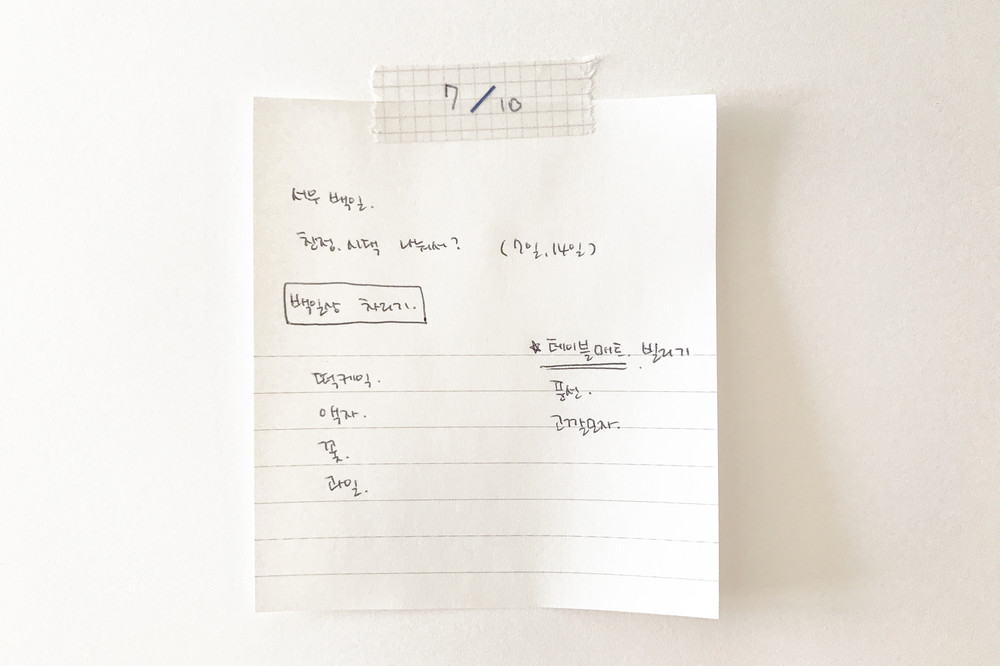 7/10
서우 백일.
친정. 시댁 나눠서? (7일, 14일)
백일상 차리기.
떡케잌.
액자.
꽃.
과일.
★ 테이블매트. 빌리기
풍선.
고깔모자.